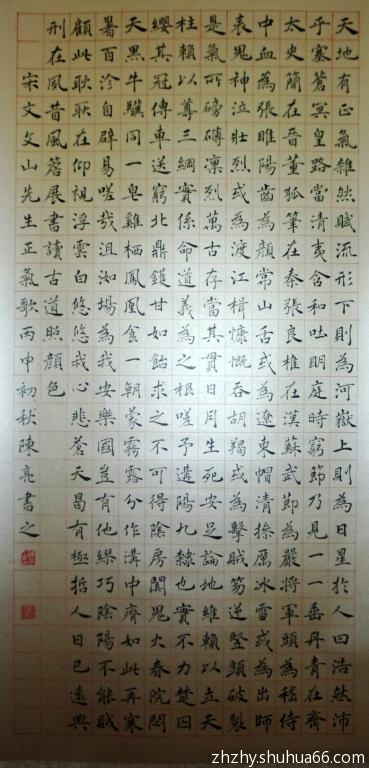 天地有正氣雜然賦流形下則為河嶽上則為日星於人曰浩然沛
乎塞蒼冥皇路當清夷含和吐明庭時窮節乃見一一垂丹青在齊
太史簡在晉董狐筆在秦張良椎在漢蘇武節為嚴將軍頭為嵇侍
中血為張睢陽齒為顏常山舌或為遼東帽清操厲冰雪或為出師
表鬼神泣壯烈或為渡江楫慷慨吞胡羯或為擊賊笏逆豎頭破裂
是氣所磅礴凜烈萬古存當其貫日月生死安足論地維賴以立天
柱賴以尊三綱實係命道義為之根嗟予遘陽九隸也實不力楚囚
纓其冠傳車送窮北鼎鑊甘如飴求之不可得陰房闃鬼火春院閟
天黑牛驥同一皂雞栖鳳凰食一朝蒙霧露分作溝中瘠如此再寒
暑百沴自辟易嗟哉沮洳場為我安樂國豈有他繆巧陰陽不能賊
顧此耿耿在仰視浮雲白悠悠我心悲蒼天曷有極哲人日已遠典
刑在夙昔風簷展書讀古道照顏色
宋文文山先生正氣歌丙申初秋陳亮書之
zhzhy.shuhua66.com